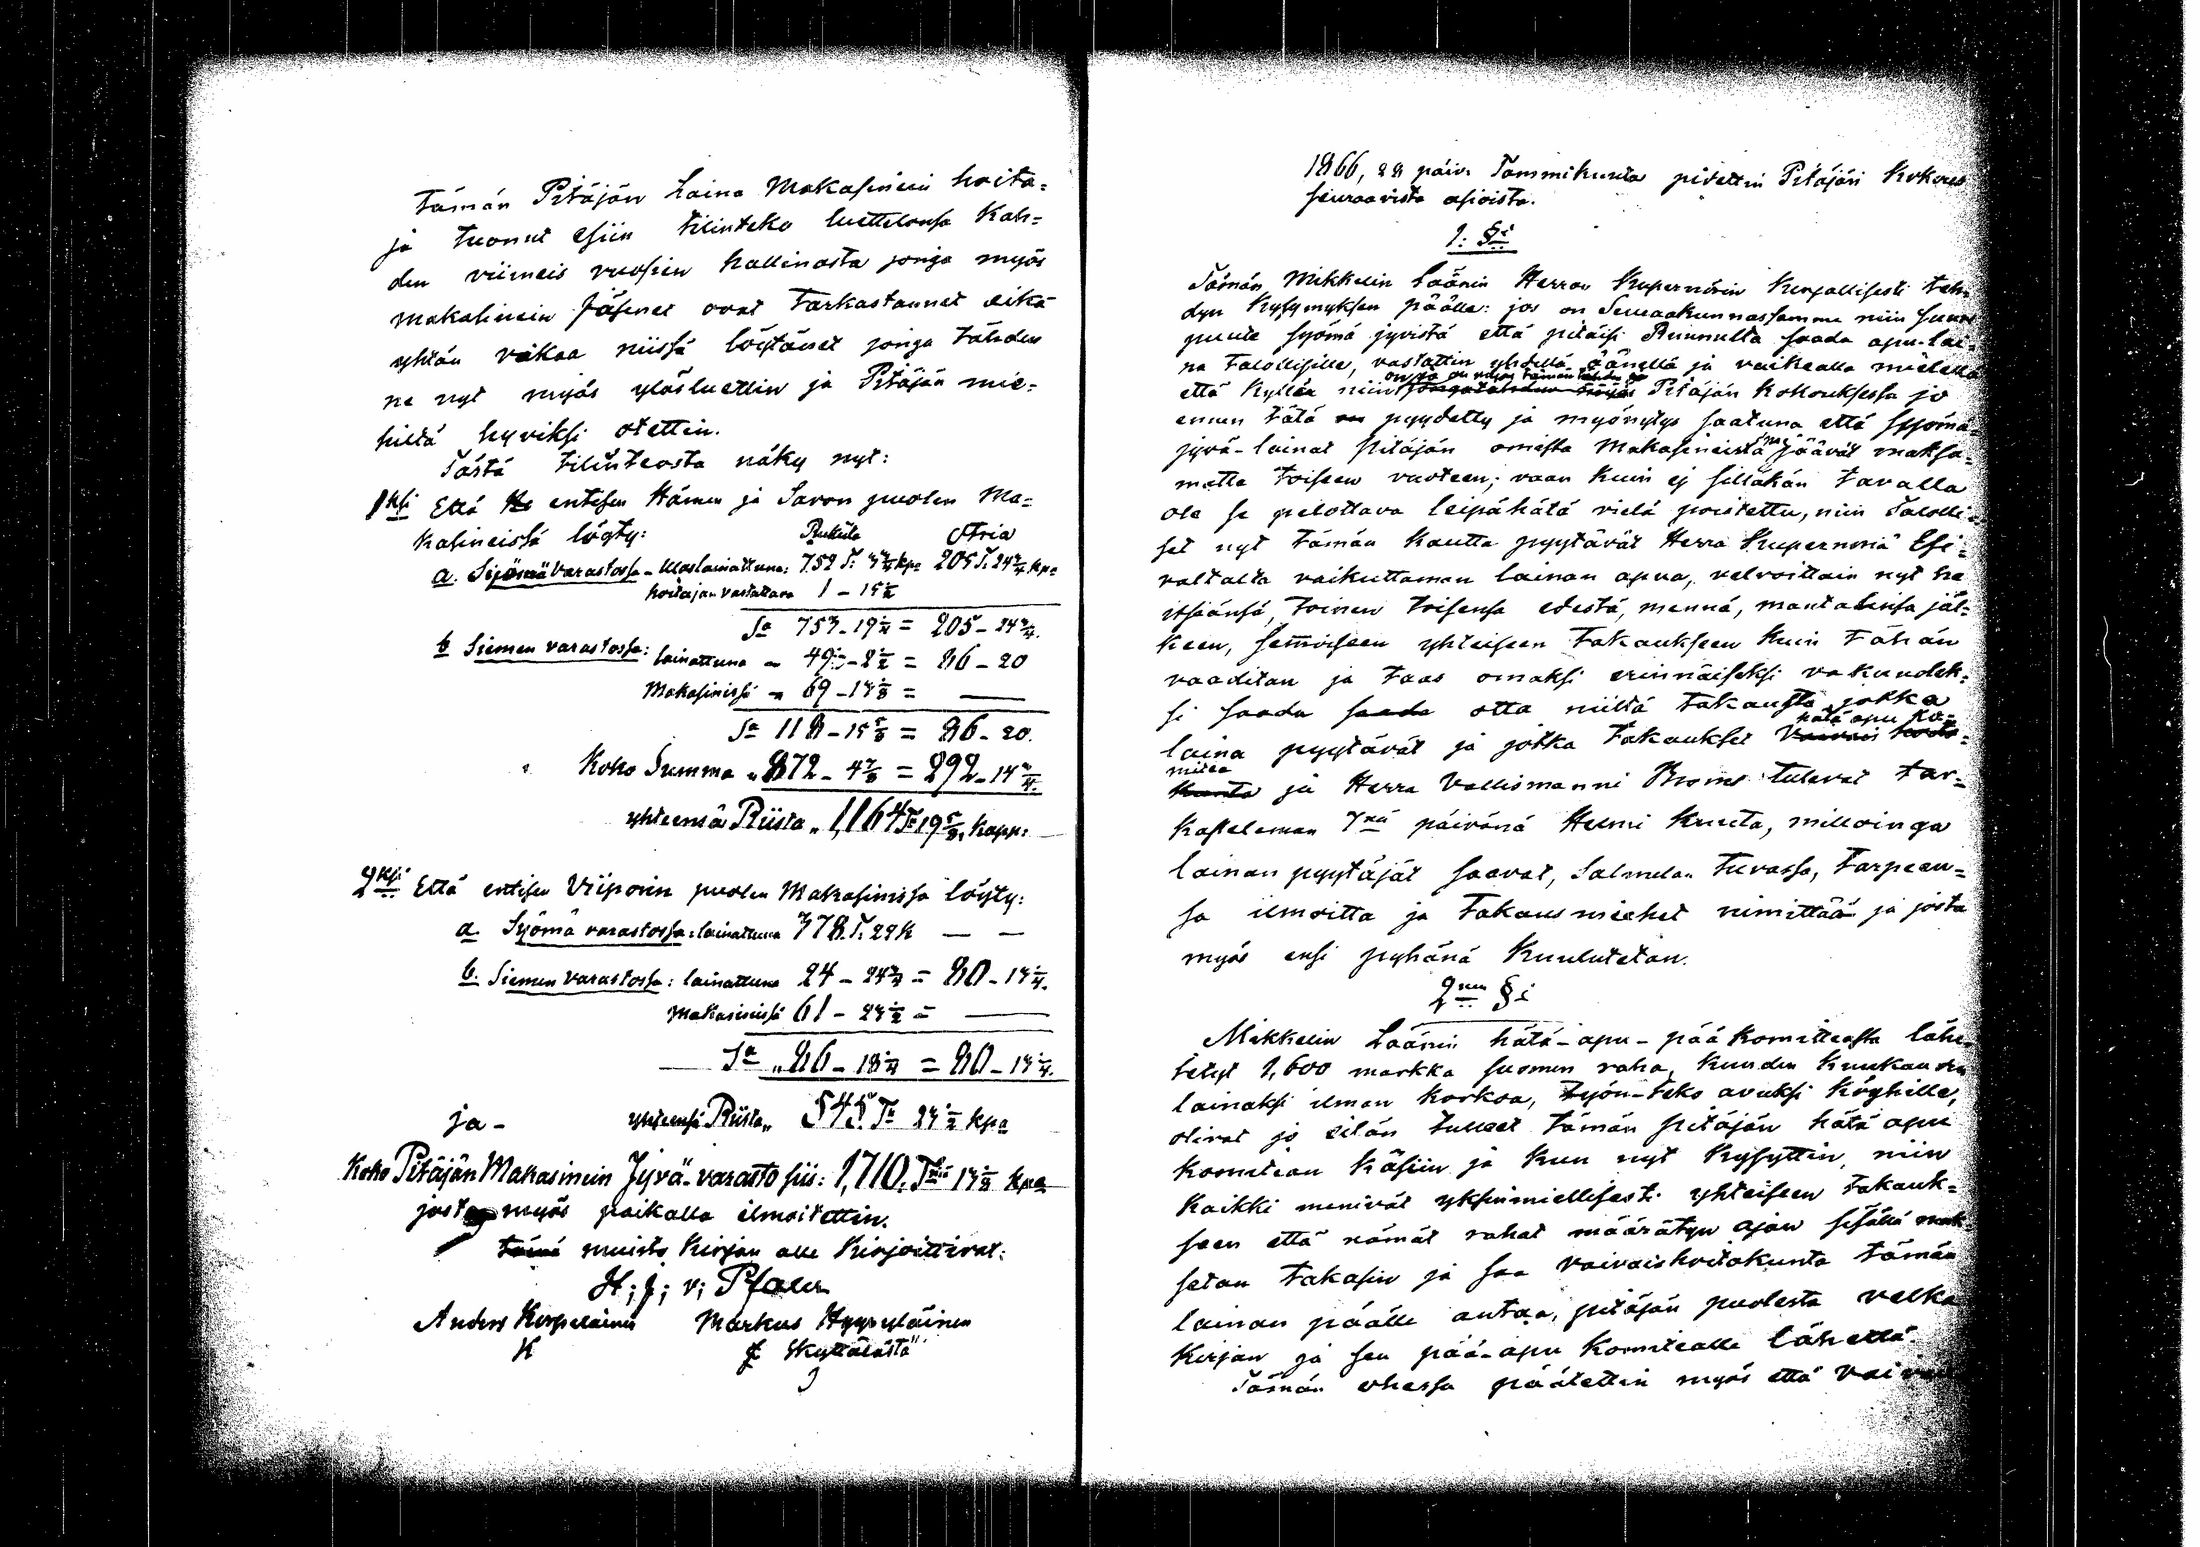 Tämän Pitäjän Laina Makasinein hoita=
ja tuonut esiin tilinteko luettelonsa Kah=
den viimeis vuosien hallinosta jonga myös
makasinein Jäsenet ovat tarkastannet eikä
yhtän vikaa niissä löytänet jonga tähden
ne nyt myös ylösluettin ja Pitäjän mie=
hiltä hyviksi otettin.
Tästä tilinteosta näky nyt:
1ksi Että He entisen Hämen ja Savon puolen Ma=
kasineissa löyty: Rukiita Otria
a. Syömävarastossa - Uloslainattuna: 752 T: 3 3/4 kpa 205 T. 24 3/4 kpa
hoitajan vastattava 1 - 15 1/2
Sa 753 - 19 1/4 = 205 - 24 3/4.
b Siemen varastossa: lainattuna - 49 - 2 1/2 = 86 - 20
Makasinissa - 69 - 13 1/8 = —
Sa 118 - 15 5/8 = 86 - 20.
Koko Summa „ 872 - 4 7/8 = 292 - 14 3/4.
yhteensä Riista „ 1,164 Tr 19 5/8 kapp:
2ksi Että entisen Viiporin puolen Makasinissa löyty:
a. Syömä varastossa: lainattuna 378. T. 29 k — —
b. Siemen varastossa: lainattuna 24 - 24 3/4 = 80 - 13 1/4.
Makasinissa 61 - 23 1/2 = —
Sa „ 86 - 18 1/4 = 80 - 13 1/4.
ja - yhteensä Riista „ 545 Tr 29 1/2 kpa
Koko Pitäjän Makasinein Jyvä-varasto siis: 1,710. Tria 13 1/8 kpa
josta myös paikalla ilmoitettin.
tämä muisto kirjan alle kirjoittivat:
H; J; v; Pfaler
Anders Korpelainen Markus Hyyryläinen
K Skyttälästä
1866, 28 päiv. Tammikuuta pidettin Pitäjän Kokous
seuraavista asioista.
1: §i
Tämän Mikkelin Läänin Herran Kupernörin kirjallisesti teh=
dyn kysymyksen päälle: jos on Seurakunnassamme niin suuri
puute syömä jyvistä että pitäisi Ruunulta saada apu-lai=
na talollisille, vastattin yhdellä äänellä ja vaikealla mielellä
että kyllä niin on ja on myös tämän tähden Pitäjän kokouksessa jo
ennen tätä on pyydetty ja myönytys saatuna että Syömä
jyvä-lainat Pitäjän omista Makasineista jäävät maksa=
matta toiseen vuoteen; vaan kuin ej silläkän tavalla
ole se pelottava leipähätä vielä poistettu, niin Talolli=
set nyt tämän kautta pyytävät Herra Kupernöriä Esi=
valtalta vaikuttaman lainan apua, velvoittain nyt he
itsiänsä, toinen toisensa edestä, mennä, mantalinsa jäl=
keen, semmoiseen yhteiseen takaukseen kuin tähän
vaaditan ja taas omaksi erinnäiseksi vakuudek=
si saada saada otta niiltä takausta jotka
laina pyytävät ja jotka takaukset Vaivais hoito= hätä apu ko=
kunta mitea ja Herra Vallismanni Broms tulevat tar=
kasteleman 7nä päivänä Helmi kuuta, milloinga
lainan pyytäjät saavat, Salmelan tuvassa, tarpeen=
sa ilmoitta ja takaus miehet nimittää ja josta
myös ensi pyhänä kuulutetan.
2nen §i
Mikkelin Läänin hätä-apu-pää komiteasta lähe=
tetyt 1,600 markka suomen raha, kuuden kuukauden
lainaksi ilman korkoa, työn-teko avuksi köyhille,
olivat jo eilän tulleet tämän pitäjän hätä apu
komitean käsiin ja kun nyt kysyttin, niin
kaikki menivät yksimiellisesti yhteiseen takauk=
seen että nämät rahat määrätyn ajan sisällä mak=
setan takasin ja saa vaivaishoitokunta tämän
lainan päälle antaa, pitäjän puolesta velka
kirjan ja sen pää-apu komitealle lähettä.
Tämän ohessa päätettin myös että vaivais